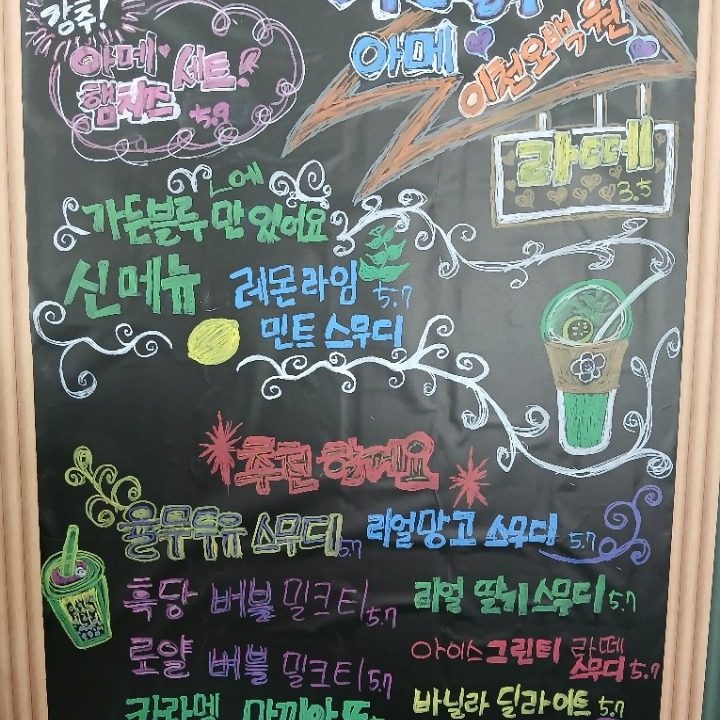 강추!
아메 세트!
햄치즈 5.9
아메 이천오백원
라떼
3.5
에
가든블루만 있어요
신메뉴 레몬라임 5.7
민트 스무디
추천 할게요
율무두유 스무디 5.7
리얼망고 스무디 5.7
흑당 버블 밀크티 5.7
리얼 딸기스무디 5.7
로얄 버블 밀크티 5.7
아이스그린티 라떼
스무디 5.7
바닐라 딜라이트 5.7
카라멜